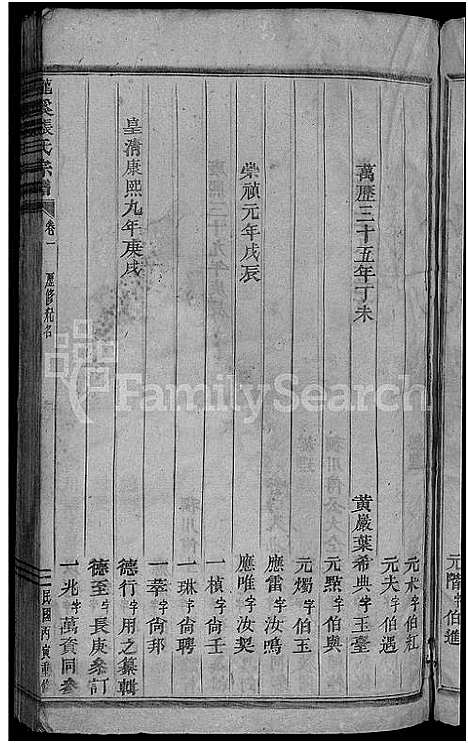 元階字伯進
元木字伯紅
元夫字伯遇
萬歷三十五年丁未
黃嚴葉希典字玉臺
元點字伯與
元燭字伯玉
應雷字汝鳴
崇禎元年戊辰
應唯字汝契
一楨字尙壬
一琳字尙聘
一萃字尙邦
皇清康熙九年庚戌
德行字用之纂輯
德至字長庚叅訂
一兆字萬資同參
張氏宗譜
卷一
歷修
名
民國丙寅重修
FamilySearch